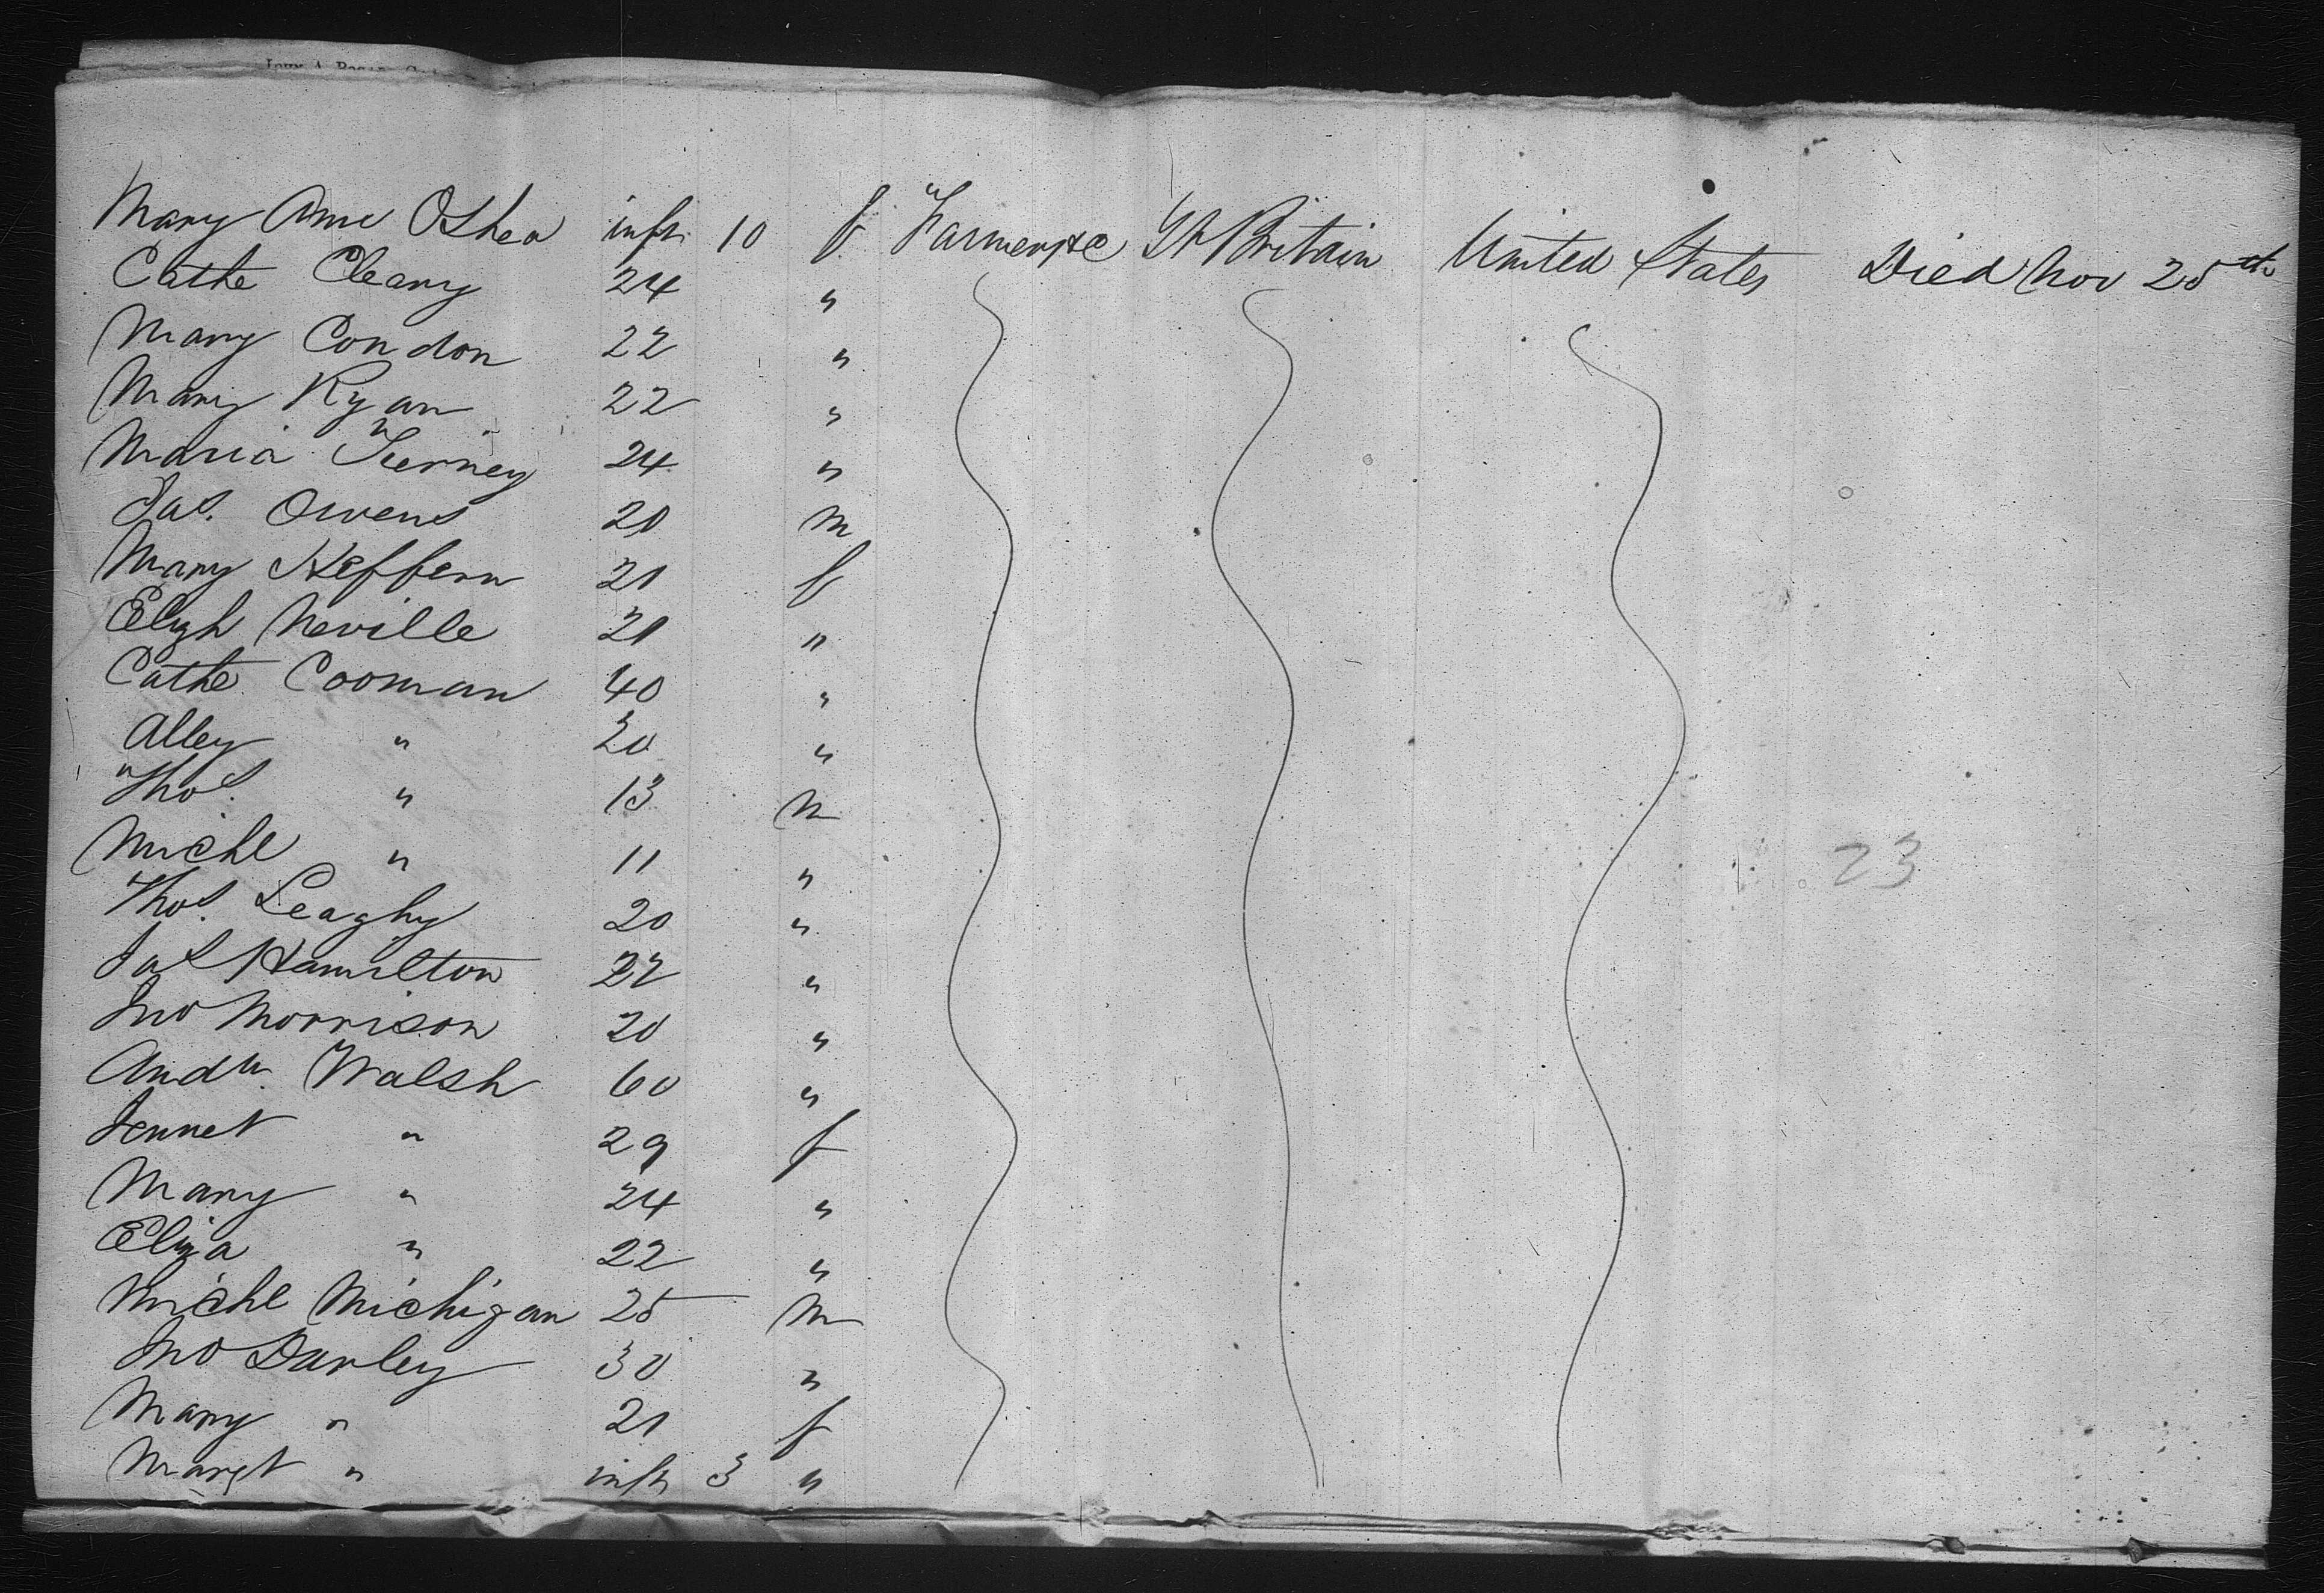 Mary Ann OShea inft 10 f Farmers &c Gt Britain United States Died Nov 25th
Cathe Cleary 24 "
Mary Condon 22 "
Mary Ryan 22 "
Maria Tierney 24 "
Jas. Owens 20 m
Mary Heffern 21 f
Elizh Neville 21 "
Cathe Cooman 40 "
Alley " 20 "
Thos. " 13 m
Michl " 11 "
Thos. Leaghy 20 "
Jas Hamilton 22 "
Jno Morrison 20 "
Andw. Walsh 60 "
Jennet " 29 f
Mary " 24 "
Eliza " 22 "
Michl Michigan 25 m
Jno Darley 30 "
Mary " 21 f
Margt " inft 3 "
23